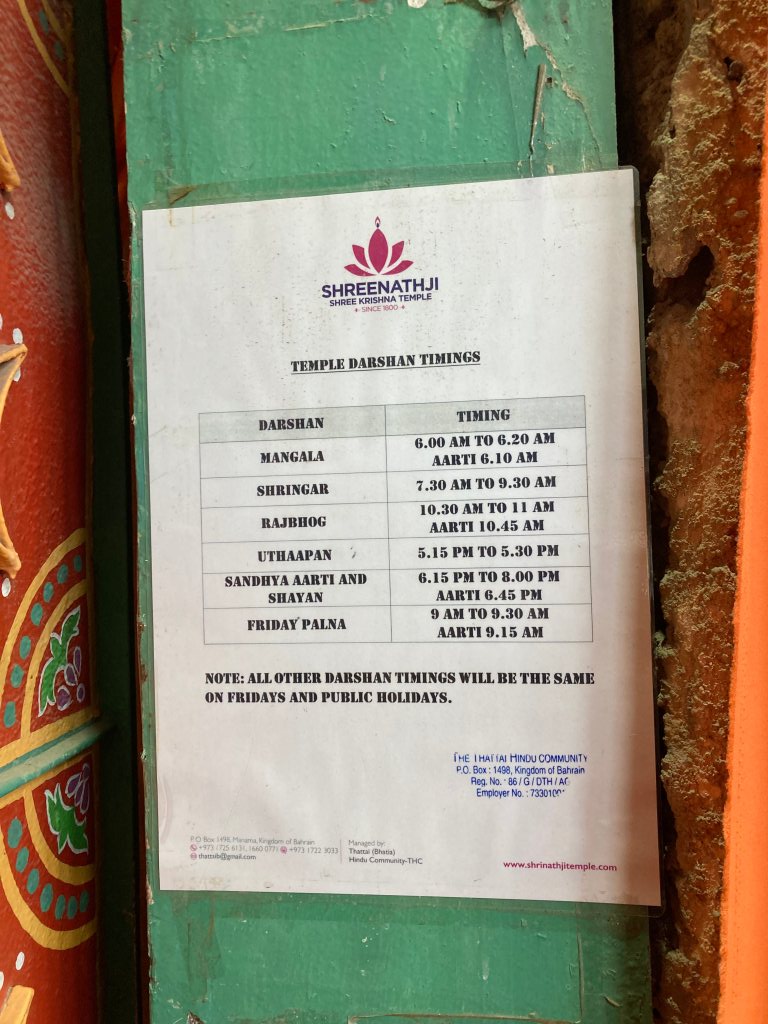 SHREENATHJI
SHREE KRISHNA TEMPLE
SINCE 1800
TEMPLE DARSHAN TIMINGS
DARSHAN TIMING
MANGALA 6.00 AM TO 6.20 AM
AARTI 6.10 AM
SHRINGAR 7.30 AM TO 9.30 AM
RAJBHOG 10.30 AM TO 11 AM
AARTI 10.45 AM
UTHAAPAN 5.15 PM TO 5.30 PM
SANDHYA AARTI AND SHAYAN 6.15 PM TO 8.00 PM
AARTI 6.45 PM
FRIDAY PALNA 9 AM TO 9.30 AM
AARTI 9.15 AM
NOTE: ALL OTHER DARSHAN TIMINGS WILL BE THE SAME
ON FRIDAYS AND PUBLIC HOLIDAYS.
THE THATTAI HINDU COMMUNITY
P.O. Box : 1498, Kingdom of Bahrain
Reg. No. : 86 / G / DTH /
Employer No. :
P O Box 1498, Manama, Kingdom of Bahrain
+973 1725 6131, 1660 0771 +973 1722 3033
thattaib@gmail.com
Managed by:
Thattai (Bhatia)
Hindu Community-THC
www.shrinathjitemple.com